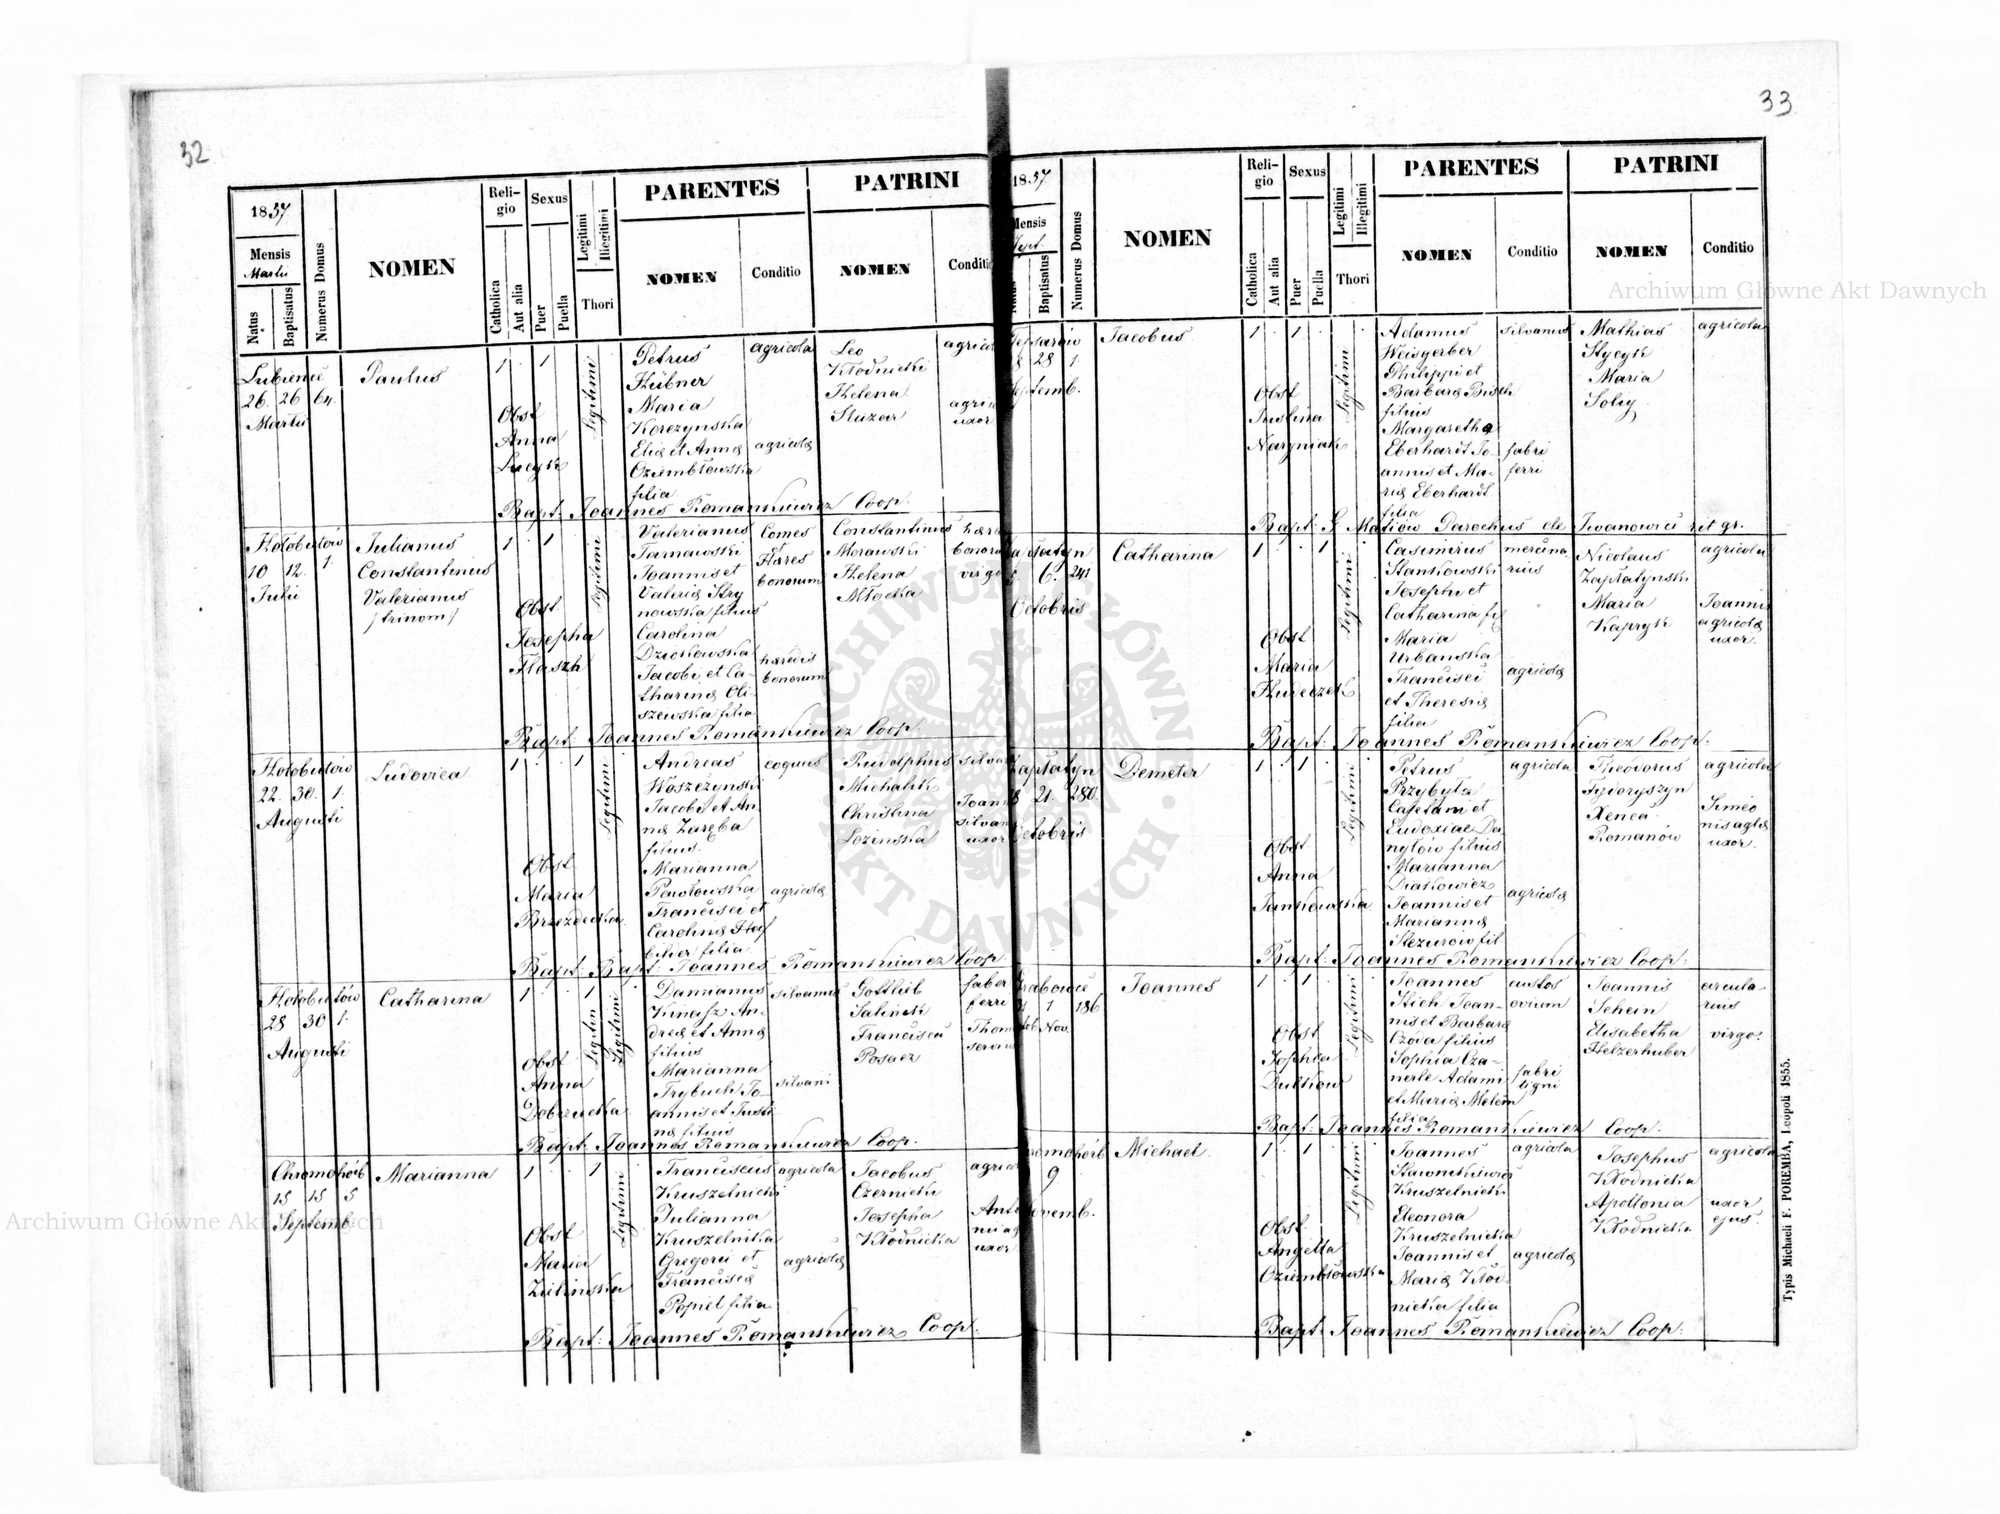 32
1857
Mensis
Martii
Natus
Baptisatus
Numerus Domus
NOMEN
Religio
Catholica
Aut alia
Sexus
Puer
Puella
Legitimi
Illegitimi
Thori
PARENTES
NOMEN
Conditio
PATRINI
NOMEN
Conditio
Lubience
26. 26 64.
Martii
Paulus
1 . 1 .
Legitimi
Obst
Anna
Petrus
Hübner
Maria
Korczynska
Eliæ et Annæ
Oziembłowska
filia
agricola
agricolæ
Leo
Kłodnicki
Helena
Sluzar
uxor
Bapt: Joannes Romankiewicz Coop.
Hołobutów
10 12. 1.
Julii
Julianus
Constantinus
Valerianus
/:trinom:/
1 . 1 .
Legitimi
Obst
Josepha
Flaszh
Valerianus
Tarnawski
Joannis et
Valeriæ Stry
nowska filius
Carolina
Dzickowska
Jacobi et Ca-
tharinæ Oli-
szewska filia
Comes
et
Hæres
bonorum
hæredis
bonorum
Constantinus
Morawski
Helena
Młocka
Bapt: Joannes Romankiewicz Coop.
Hołobutów
22. 30. 1.
Augusti
Ludovica
1 . . 1
Legitimi
Obst
Maria
Brzezdecka
Andreas
Woszczynski
Jacobi et An-
næ Zaręba
filius.
Marianna
Pawłowska
Francisci et
Carolinæ Hof
bilder filia
coquus
agricolæ
Rudolphus
Michalik
Christina
Lozinska
uxor
Bapt: Bapt: Joannes Romankiewicz Coop
Hołobutów
28 30 1.
Augusti
Catharina
1 . . 1
Legitim
Legitimi
Obst
Anna
Dobrzucka
Damianus
Kinasz An-
dreæ et Annæ
filius
Marianna
Trybuch Jo-
annis et Justi
næ filius
silvanus
silvani
Gottlieb
Salinek
Francisca
Posacz
faber
ferri
Bapt: Joannes Romankiewicz Coop.
Chromohorb
15 15 5
Septemb.
Marianna
1 . . 1
Legitimi
Obst
Maria
Zielinska
Franciscus
Kruszelnicki
Julianna
Kruszelnicka
Gregorii et
Franciscæ
Popiel filia
agricola
agricolæ
Jacobus
Czernicki
Josepha
Kłodnicka
uxor
Bapt: Joannes Romankiewicz Coop.
33
1857
Mensis
Sept.
Natus
Baptisatus
Numerus Domus
NOMEN
Religio
Catholica
Aut alia
Sexus
Puer
Puella
Legitimi
Illegitimi
Thori
PARENTES
NOMEN
Conditio
PATRINI
NOMEN
Conditio
8 28 1.
Septemb.
Jacobus
1 . 1 .
Legitimi
Obst
Justina
Naryniak
Adamus
Weisgerber
Philippi et
Barbaræ Bisch
filius
Margaretha
Eberhardt Jo-
annis et Ma-
riæ Eberhardt.
filia
silvanus
fabri
ferri
Mathias
Stycyk
Maria
Soley
agricola
Bapt: S. Matiow Parochus de Iwanowicé rit gr.
6. 241
Octobris
Catharina
1 . . 1
Legitimi
Obst
Maria
Hudeczek
Casimirus
Stankowski
Josephi et
Catharina fil
Maria
Urbanska
Francisci
et Theresiæ
filia
mercina
rius
agricolæ
Nicolaus
Zapłatynski
Maria
Kapryk
agricola
Joannis
agricolæ
uxor.
Bapt: Joannes Romankiewicz Coop.
21. 280.
Octobris
Demeter
1 . 1 .
Legitimi
Obst
Anna
Jankowska
Petrus
Przybyła
Cajetani et
Eudoxiae Da-
nyłów filius
Marianna
Diakowicz
Joannis et
Mariannæ
Slezurow fil
agricola
agricolæ
Theodorus
Fizioryszyn
Xenea
Romanów
agricola
Simeo
nis aglæ
uxor.
Bapt: Joannes Romankiewicz Coop.
Grabowce
31 1 186
Nov.
Joannes
1 . 1 .
Legitimi
Obst
Sophia
Dutkow
Joannes
Stich Joan-
nis et Barbaræ
Czoda filius
Sophia Cza-
nerle Adami
et Mariæ Melem
filia
custos
ovium
fabri
ligni
Joannis
Schein
Elisabetha
Helzerhuber
arcula-
rius
virgo.
Bapt: Joannes Romankiewicz Coop.
9
Novemb.
Michael.
1 . 1 .
Legitimi
Obst
Angella
Oziembłowska
Joannes
Kruszelnicki
Eleonora
Kruszelnicka
Joannis et
Mariæ Kłod-
nicka filia
agricola
agricolæ
Josephus
Kłodnicka
Apollonia
Kłodnicka
agricola
uxor
ejus.
Bapt: Joannes Romankiewicz Coop.
Typis Michaeli F. POREMBA, Leopoli 1855.
Archiwum Główne Akt Dawnych
Archiwum Główne Akt Dawnych
ARCHIWUM GŁÓWNE AKT DAWNYCH